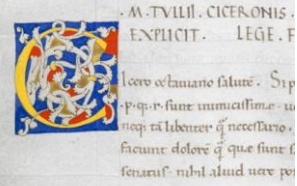 · M · TVLII · CICERONIS ·
EXPLICIT · LEGE · F
Cicero octauiano salutē . Si p
· p · q · r · sunt inimicissimę · u
neq; tā libenter q̃ necessario .
faciunt dolorē q̃ quę sunt s
senatus · nihil aliud uere po